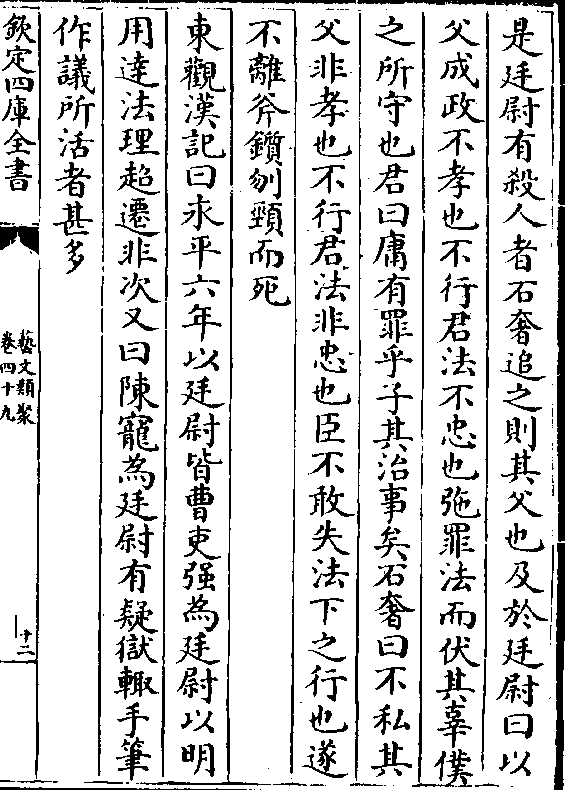 是廷尉有殺人者石奢追之則其父也及於廷尉曰以
父成政不孝也不行君法不忠也弛罪法而伏其辜僕
之所守也君曰庸有罪乎子其治事矣石奢曰不私其
父非孝也不行君法非忠也臣不敢失法下之行也遂
不離斧鑕刎頸而死
東觀漢記曰永平六年以廷尉皆曹吏强為廷尉以明
用達法理超遷非次又曰陳寵為廷尉有疑獄輙手筆
作議所活者甚多
欽定四庫全書
藝文類聚
卷四十九
十二